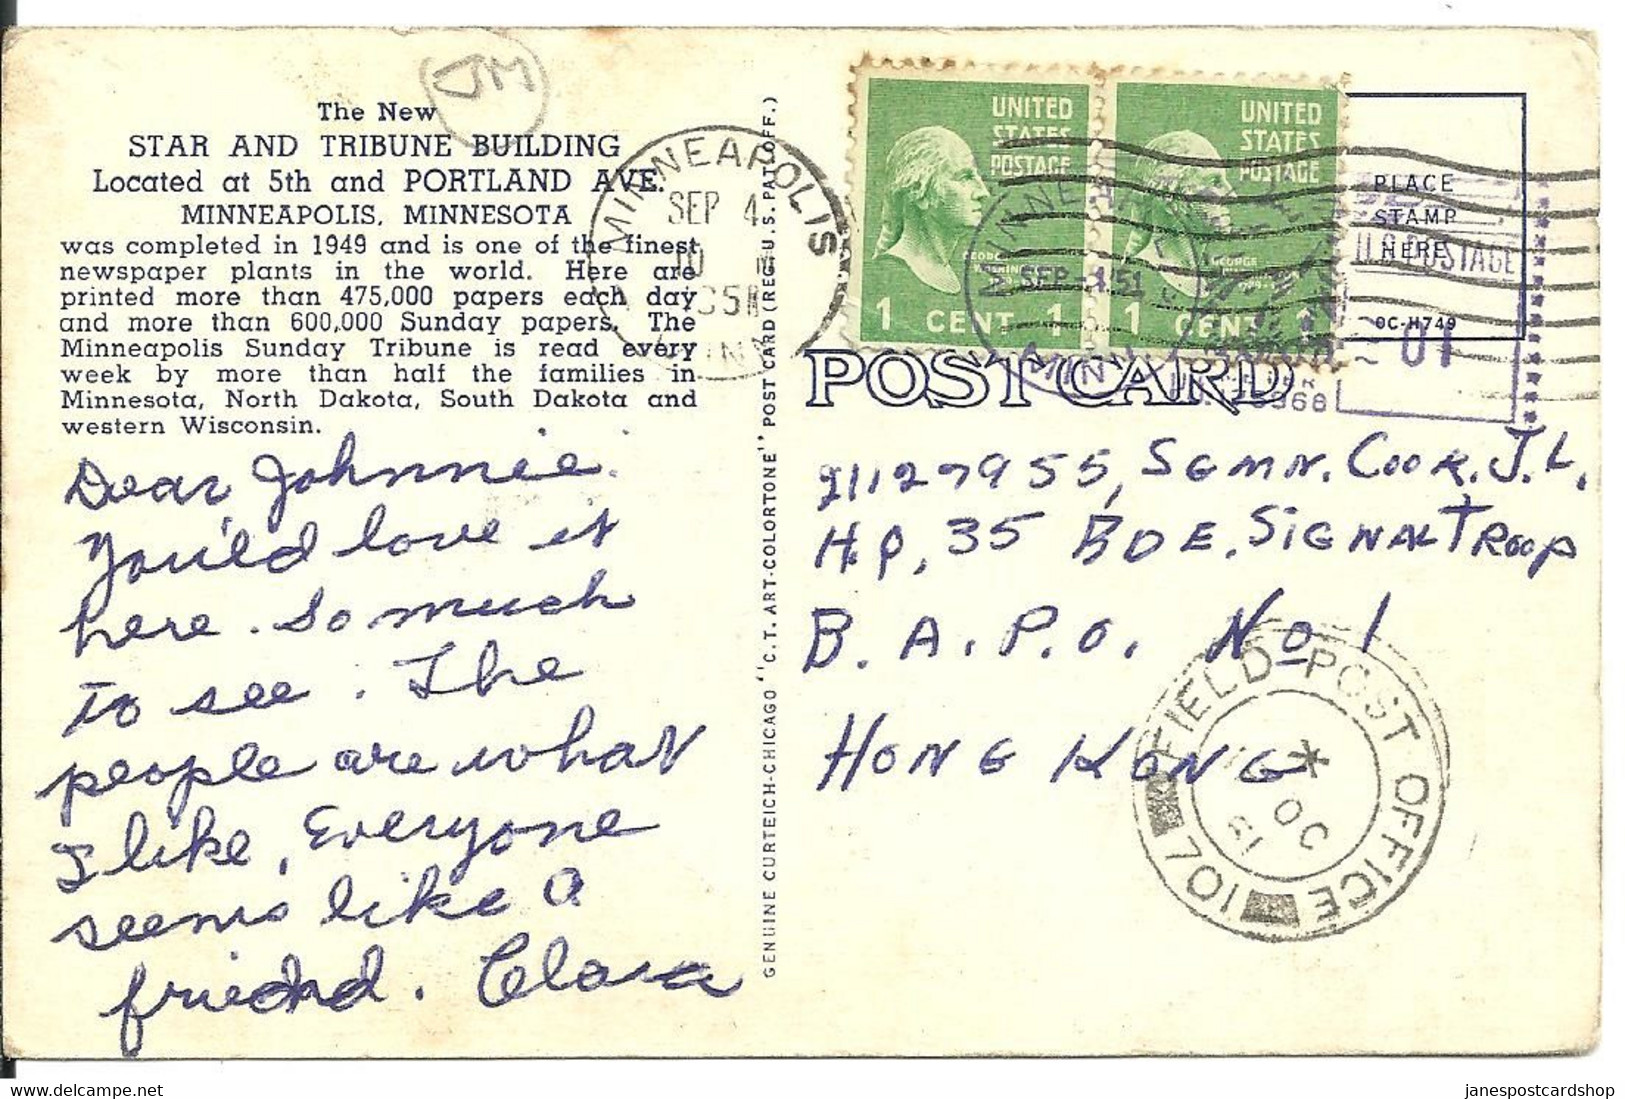 JM
The New
STAR AND TRIBUNE BUILDING
Located at 5th and PORTLAND AVE.
MINNEAPOLIS, MINNESOTA
was completed in 1949 and is one of the finest
newspaper plants in the world. Here are
printed more than 475,000 papers each day
and more than 600,000 Sunday papers. The
Minneapolis Sunday Tribune is read every
week by more than half the families in
Minnesota, North Dakota, South Dakota and
western Wisconsin.
Dear Johnnie.
You'ld love it
here. So much
to see. The
people are what
I like, Everyone
seems like a
friend. Clara
GENUINE CURTEICH-CHICAGO "C.T. ART-COLORTONE" POST CARD (REG. U.S. PAT. OFF.)
MINNEAPOLIS
SEP 4
MINN
UNITED
STATES
POSTAGE
GEORGE
1 CENT 1
UNITED
STATES
POSTAGE
GEORGE
1 CENT 1
MINNEAPOLIS
SEP 4 '51
MINN.
PLACE
STAMP
HERE
U.S. POSTAGE
0C-H749
01
POST CARD
21127955, SGMN. COOK. J.L.
H.Q, 35 BDE. SIGNAL TROOP
B.A.P.O. No 1
HONG KONG
FIELD POST OFFICE
OC
51
107
janespostcardshop